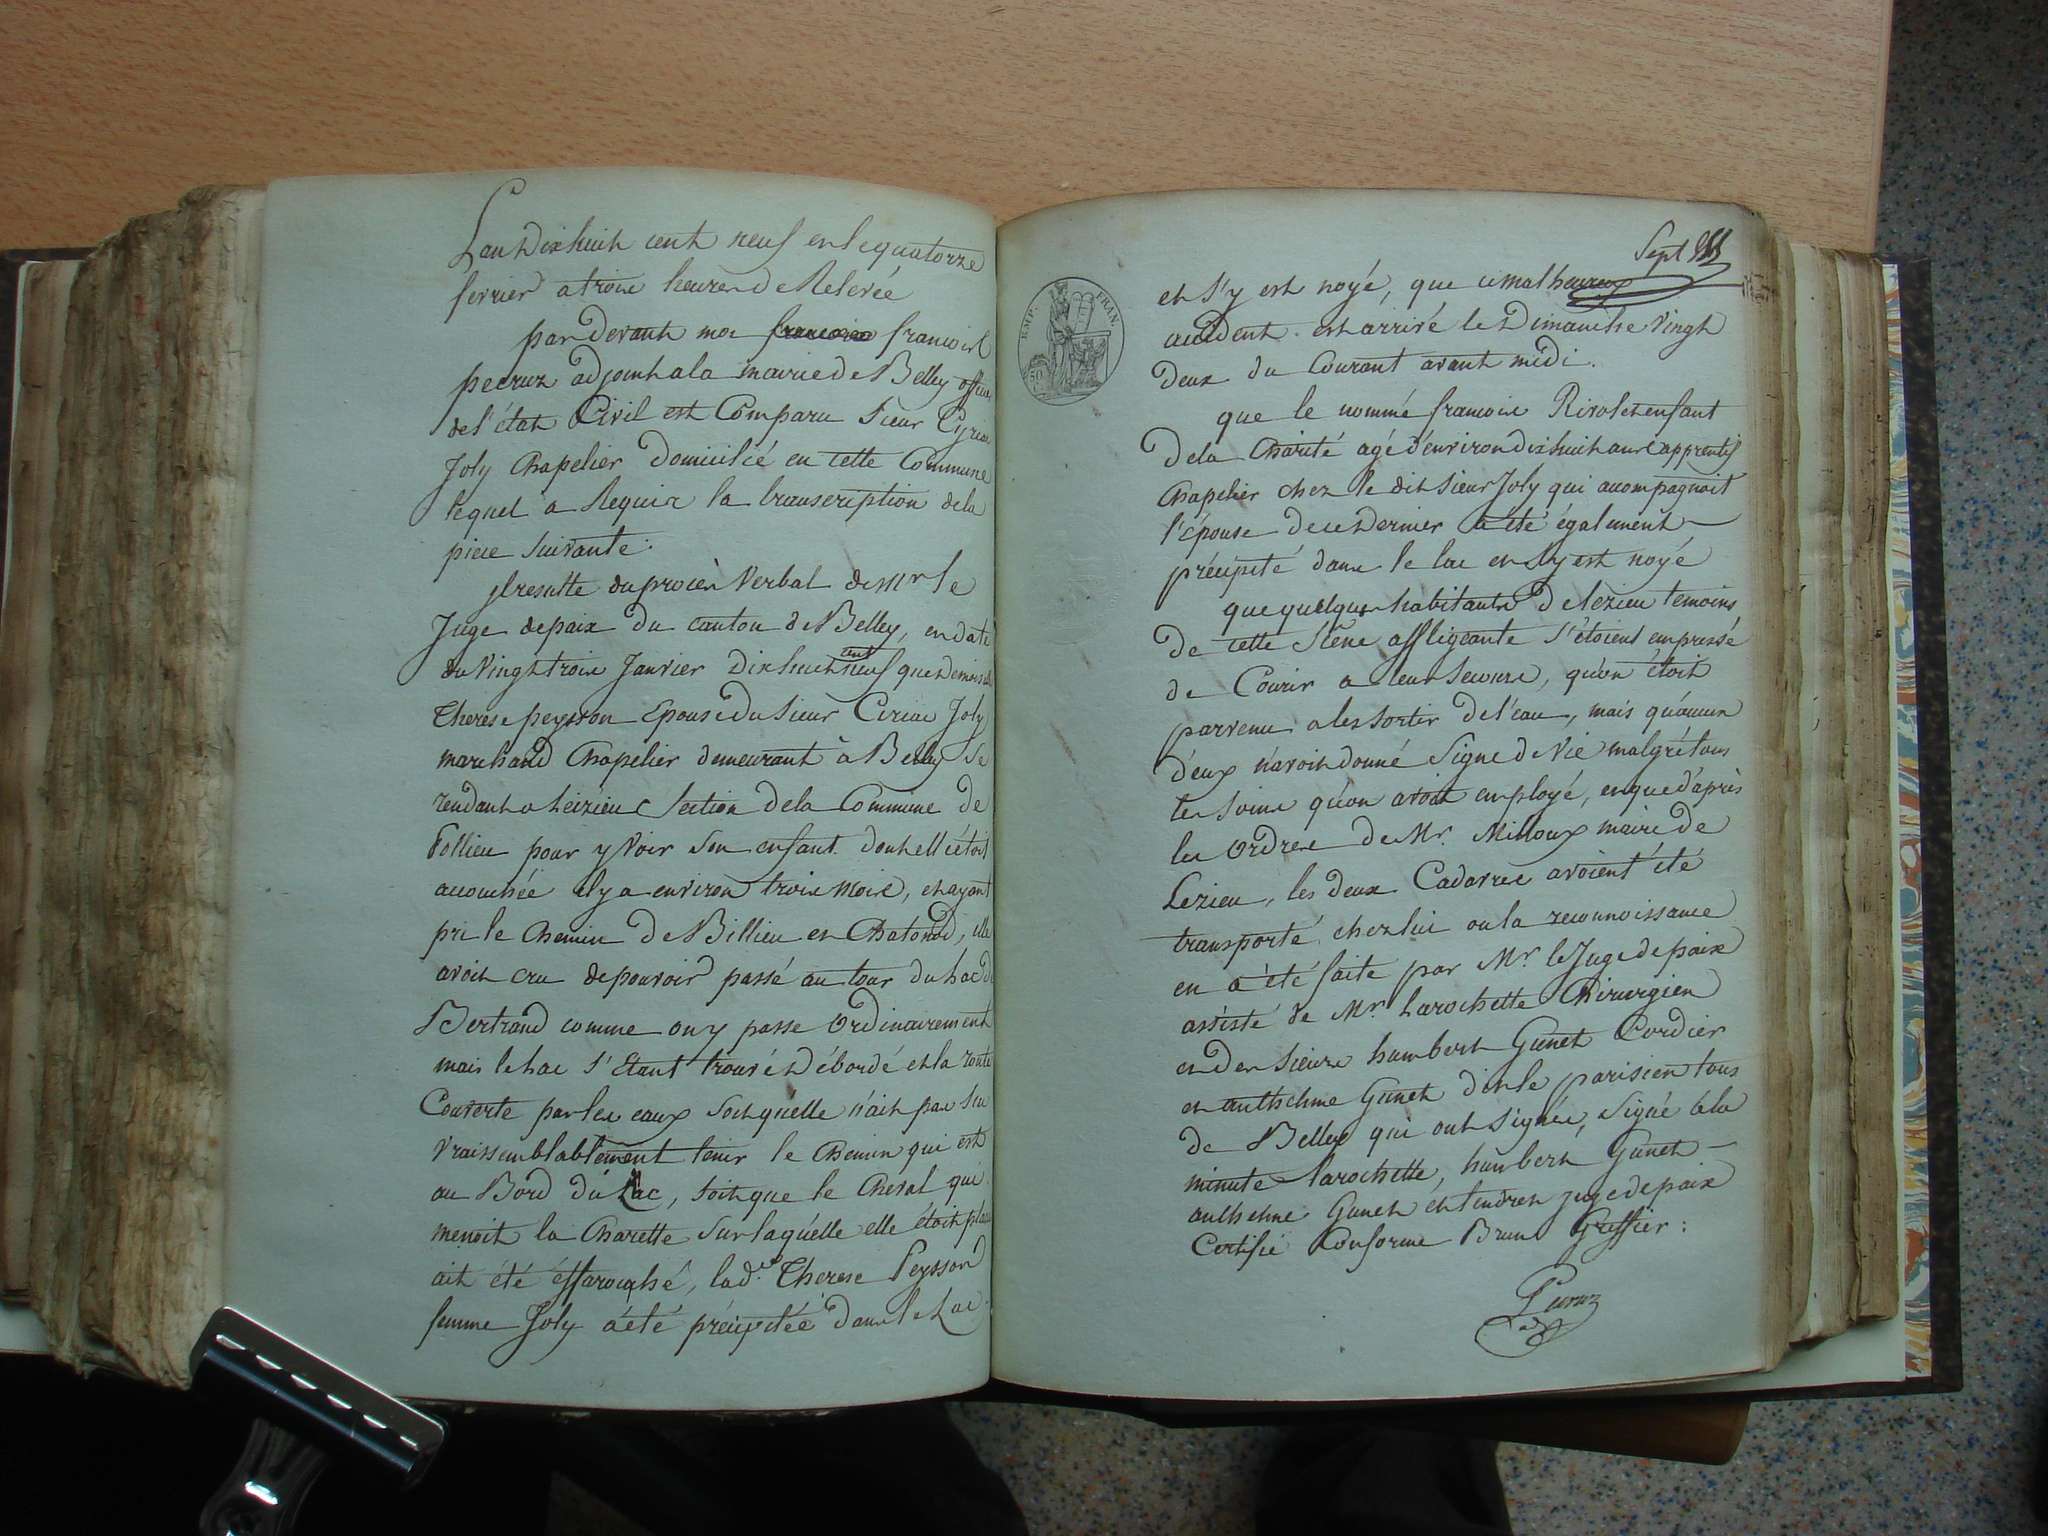 L'an Dix huit cent neuf en le quatorze
fevrier a trois heures de Relevée
par Devant moi francois
pecruz adjoint a la mairie de Belley officier
de l'état Civil est Comparu Sieur Cyriac
Joly Chapelier Domicilié en cette Commune
lequel a Requis la transcription de la
piece Suivante:
Il resulte du procès Verbal de Mr le
Juge de paix du canton de Belley, en date
du Vingt trois Janvier Dix huit cent neuf que Demoiselle
Therese peysson Epouse du Sieur Ciriac Joly
marchand Chapelier demeurant à Belley Se
rendant a Leizieu Section de la Commune de
Pollieu pour y Voir Son enfant dont ell'étoit
accouchée il y a environ trois mois, et ayant
pris le Chemin de Billieu et Chatonod, elle
avoit cru de pouvoir passé au tour du Lac de
Bertrand comme on y passe Ordinairement
mais le Lac S'Etant trouvé Débordé et la route
Couverte par les eaux Soit qu'elle n'ait pas Su
Vraissemblablement tenir le Chemin qui est
au Bord du Lac, Soit que le Cheval qui
menoit la Charette Sur laquélle elle étoit placée
ait été éffarouché, lad.e Therese Peysson
femme Joly a été précipitée dans le Lac
Sept
et s'y est noyé, que ce malheureux
accident est arrivé le Dimanche Vingt
Deux du Courant avant midi.
que le nommé francois Rivolet enfant
De la Charité agé d'environ Dix huit ans apprentif
Chapelier chez le dit Sieur Joly qui accompagnoit
l'épouse de ce Dernier a été également
précipité dans le lac et s'y est noyé
que quelques habitants De Lezieu temoins
de cette Scêne affligeante S'étoient empressé
de Courir a leur Secours, qu'on étoit
parvenu a les Sortir de l'eau, mais qu'aucun
d'eux n'avoit donné Signe de Vie malgré tous
les Soins qu'on avoit employé, et que d'après
les Ordres de Mr. Milloux maire de
Lezieu, les deux Cadavres avoient été
transporté chez lui ou la reconnoissance
en a été faite par Mr. le Juge de paix
assisté de Mr. Larochette Chirurgien
et des Sieurs humbert Gunet Cordier
et anthelme Gunet dit le parisien tous
de Belley qui ont Signés, Signé a la
minute larochette, humbert Gunet
anthelme Gunet et tendret juge de paix
Certifié Conforme Brun Greffier:
Pecruz
adj
EMP. FRAN.
50